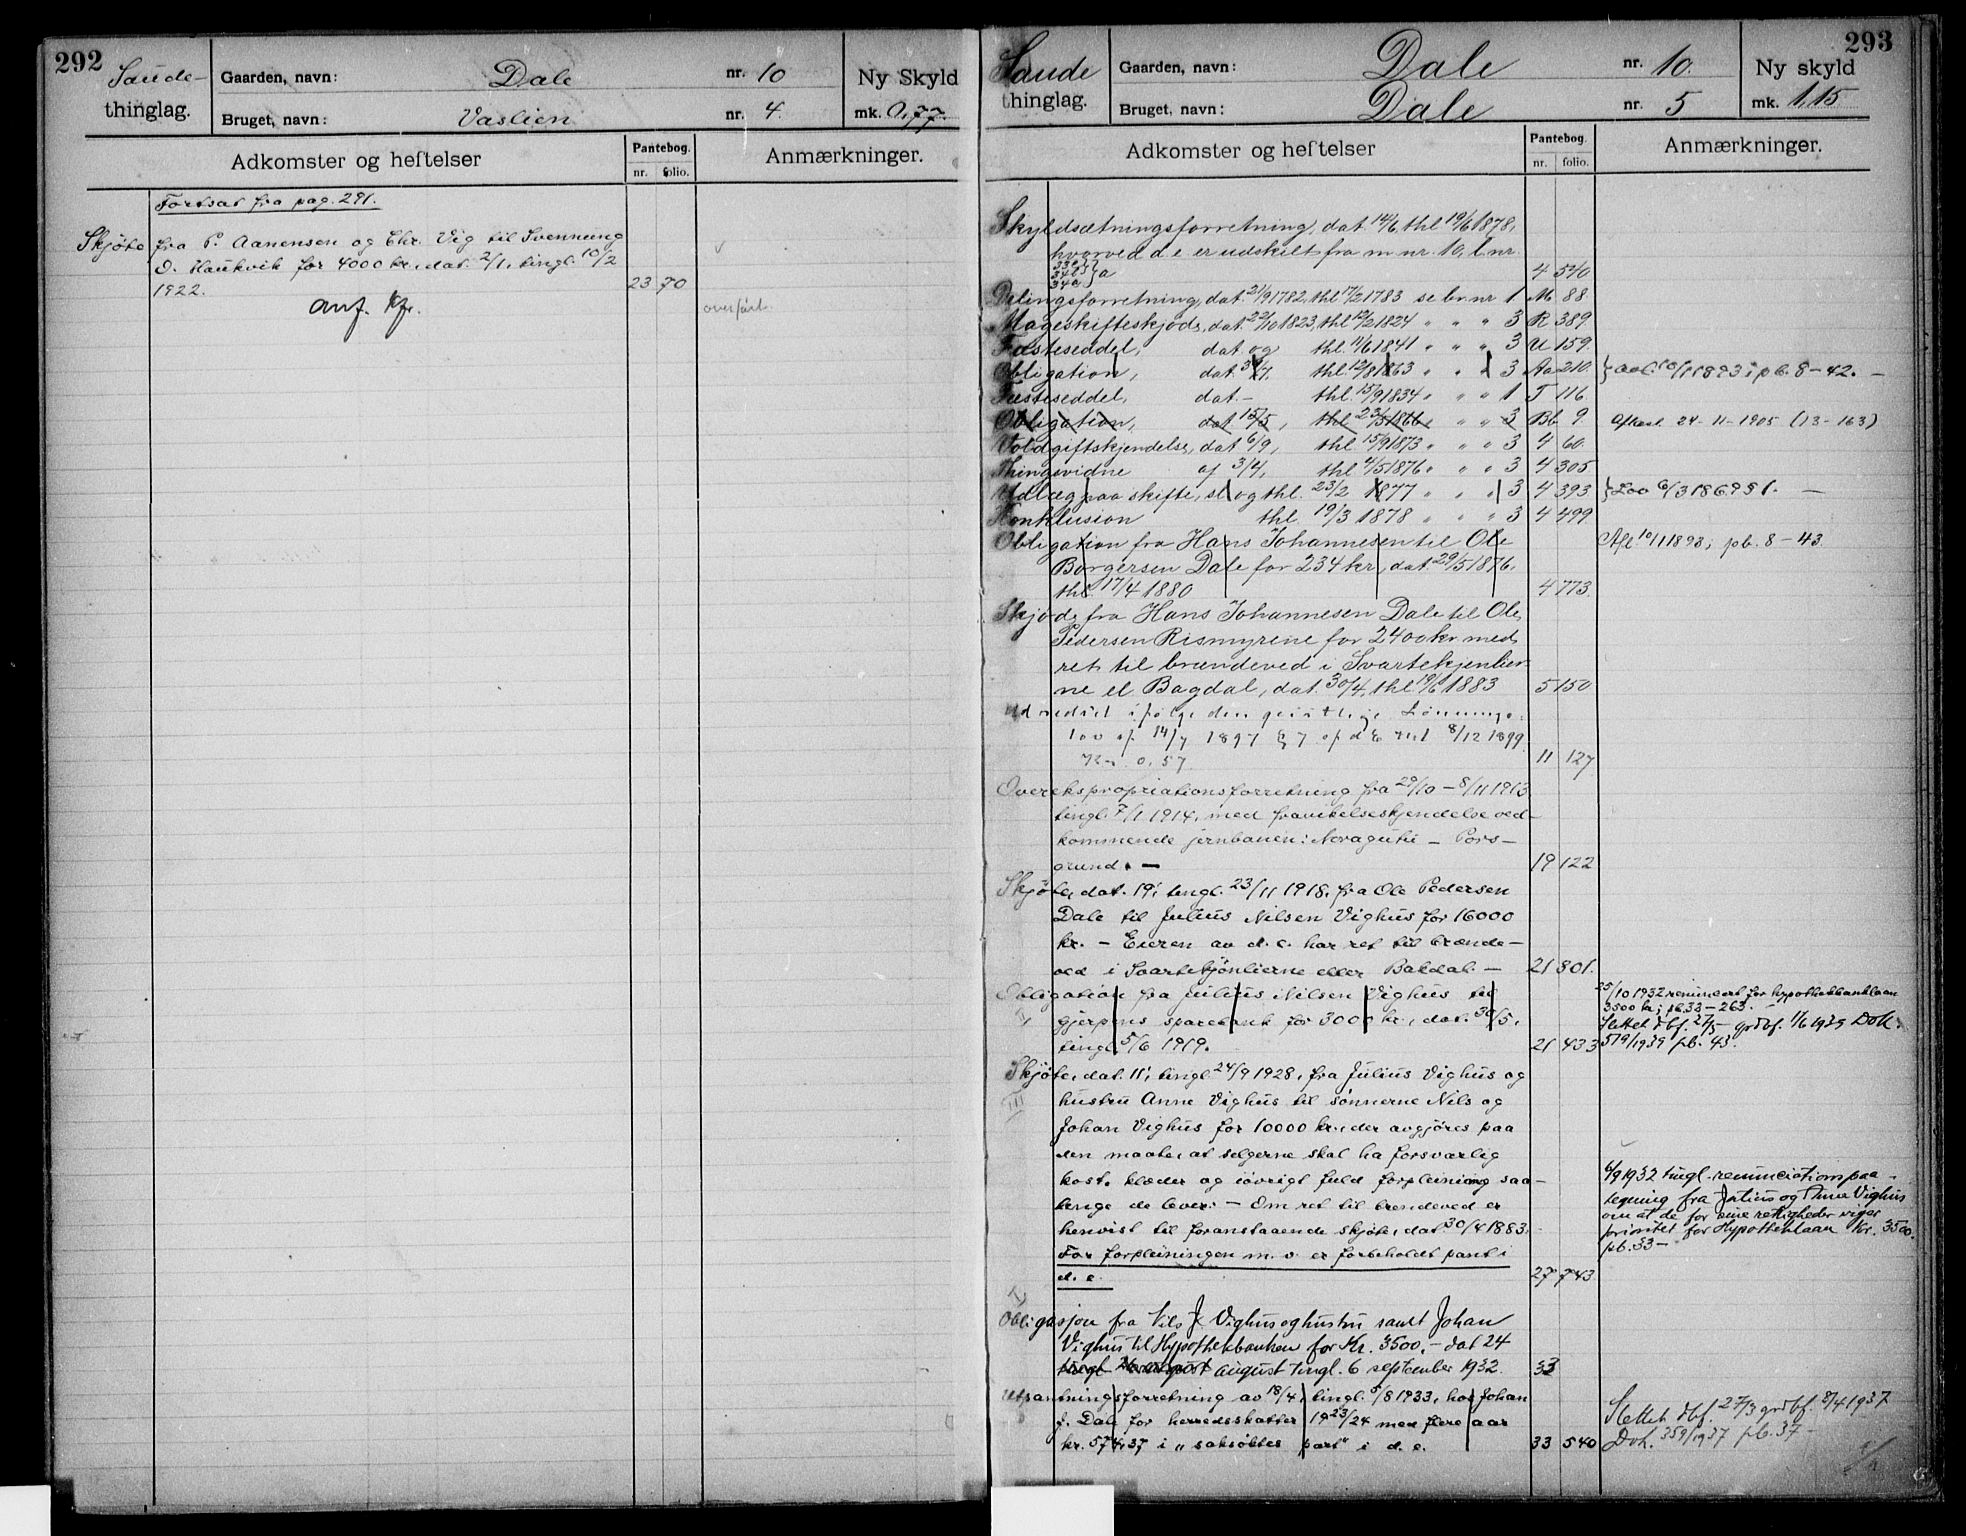 292
Saude-
thinglag.
Gaarden, navn: Dale nr. 10
Bruget, navn: Vaslien nr. 4.
Ny Skyld
mk. 0,77.
Adkomster og heftelser
Pantebog.
nr. folio.
Anmærkninger.
Fortsat fra pag. 291.
Skjøte fra P. Aanensen og Chr. Vig til Svennung
O. Haukvik for 4000 kr., dat. 2/1, tingl. 10/2
1922. 23 70
anf. Kfr.
overført.
293
Saude
thinglag.
Gaarden, navn: Dale nr. 10.
Bruget, navn: Dale nr. 5
Ny skyld
mk. 1,15
Adkomster og heftelser
Pantebog.
nr. folio.
Anmærkninger.
Skyldsætningsforretning, dat. 14/6, thl. 19/6 1878,
hvorved d. e. er udskilt fra m. nr. 10, l. nr.
33a
34b } a
34a 4 540
Delingsforretning, dat. 21/9 1782, thl. 17/2 1783 se br. nr. 1 M 88
Mageskifteskjøde, dat. 22/10 1823, thl. 12/2 1824 " " " 3 R 389
Fæsteseddel, dat. og thl. 11/6 1841 " " " 3 U 159.
Obligation, dat. 30/7, thl. 12/8 1863 " " " 3 Aa 210. } Aol. 10/1 1893; pb. 8-42. —
Fæsteseddel, dat. - thl. 15/9 1834 " " " 1 T 116.
Obligation, dat. 15/5, thl. 23/5 1866 " " " 3 Bb 9. Aflæst 24-11-1905 (13-163)
Voldgiftskjendelse, dat. 6/9, thl. 15/9 1873 " " " 3 4 60.
Thingsvidne af 3/4, thl. 4/5 1876 " " " 3 4 305
Udlæg paa skifte, sl. og thl. 23/2 1877 " " " 3 4 393 } Lov 6/3 1869 § 1. —
Konklusion thl. 19/3 1878 " " " 3 4 499
Obligation fra Hans Johannesen til Ole Afl. 10/1 1893; pb. 8-43
Borgersen Dale for 234 kr., dat. 29/5 1876,
thl. 17/4 1880 4 773.
Skjøde fra Hans Johannesen Dale til Ole
Pedersen Rismyrene for 2400 kr. med
ret til brændeved i Svartekjenlier-
ne el. Bagdal, dat. 30/4, thl. 19/6 1883 5 150
Udredsel ifølge den geistlige Lønnings-
lov af 14/7 1897 § 7 af d. e. thl. 8/12 1899
Kr. 0,57 11 127
Overekspropriationsforretning fra 29/10 - 8/11 1913
tingl. 7/1 1914, med fravikelseskjendelse ved-
kommende jernbanen: Noragutu - Pors-
grund. — 19 122
Skjøte, dat. 19, tingl. 23/11 1918, fra Ole Pedersen
Dale til Julius Nilsen Vighus for 16000
kr. - Eieren av d. e. har ret til brænde-
ved i Svartekjønlierne eller Bakdal. — 21 301.
Obligation fra Julius Nilsen Vighus til
II
gjerpens sparebank for 3000 kr., dat. 30/5,
tingl. 5/6 1919. 21 433
25/10 1932 renuncert for hypothekbanklaan
3500 kr; pb. 33-263.
Slettet dbf. 27/5 grdbf. 1/6 1939 Dok.
519/1939 pb. 43.
Skjøte, dat. 11, tingl. 24/9 1928, fra Julius Vighus og
III
hustru Anne Vighus til sønnerne Nils og
Johan Vighus for 10000 kr. der avgjøres paa
den maate, at selgerne skal ha forsvarlig
kost, klæder og iøvrigt fuld forpleining saa-
længe de lever. - Om ret til brendeved er
henvist til foranstaaende skjøte, dat. 30/4 1883.
For forpleiningen m. v. er forbeholdt pant i
d. e. 27 743.
6/9 1932 tingl. renunciationspaa-
tegning fra Julius og Anne Vighus
om at de for sine rettigheder viger
prioritet for Hypotheklaan Kr. 3500.
pb. 33 -
I
Obligasjon fra Nils J. Vighus og hustru samt Johan
Vighus til Hypothekbanken for Kr. 3500,- dat 24
august tingl. 6 september 1932. 33
Utpantningsforretning av 18/4, tingl. 5/8 1933, hos Johan
J. Dale for herredsskatter 1923/24 med flere aar
kr. 574,37 i "saksøktes part" i d. e. 33 540
Slettet dbf. 27/3 grdbf. 8/4 1937
Dok. 359/1937 pb. 37 -